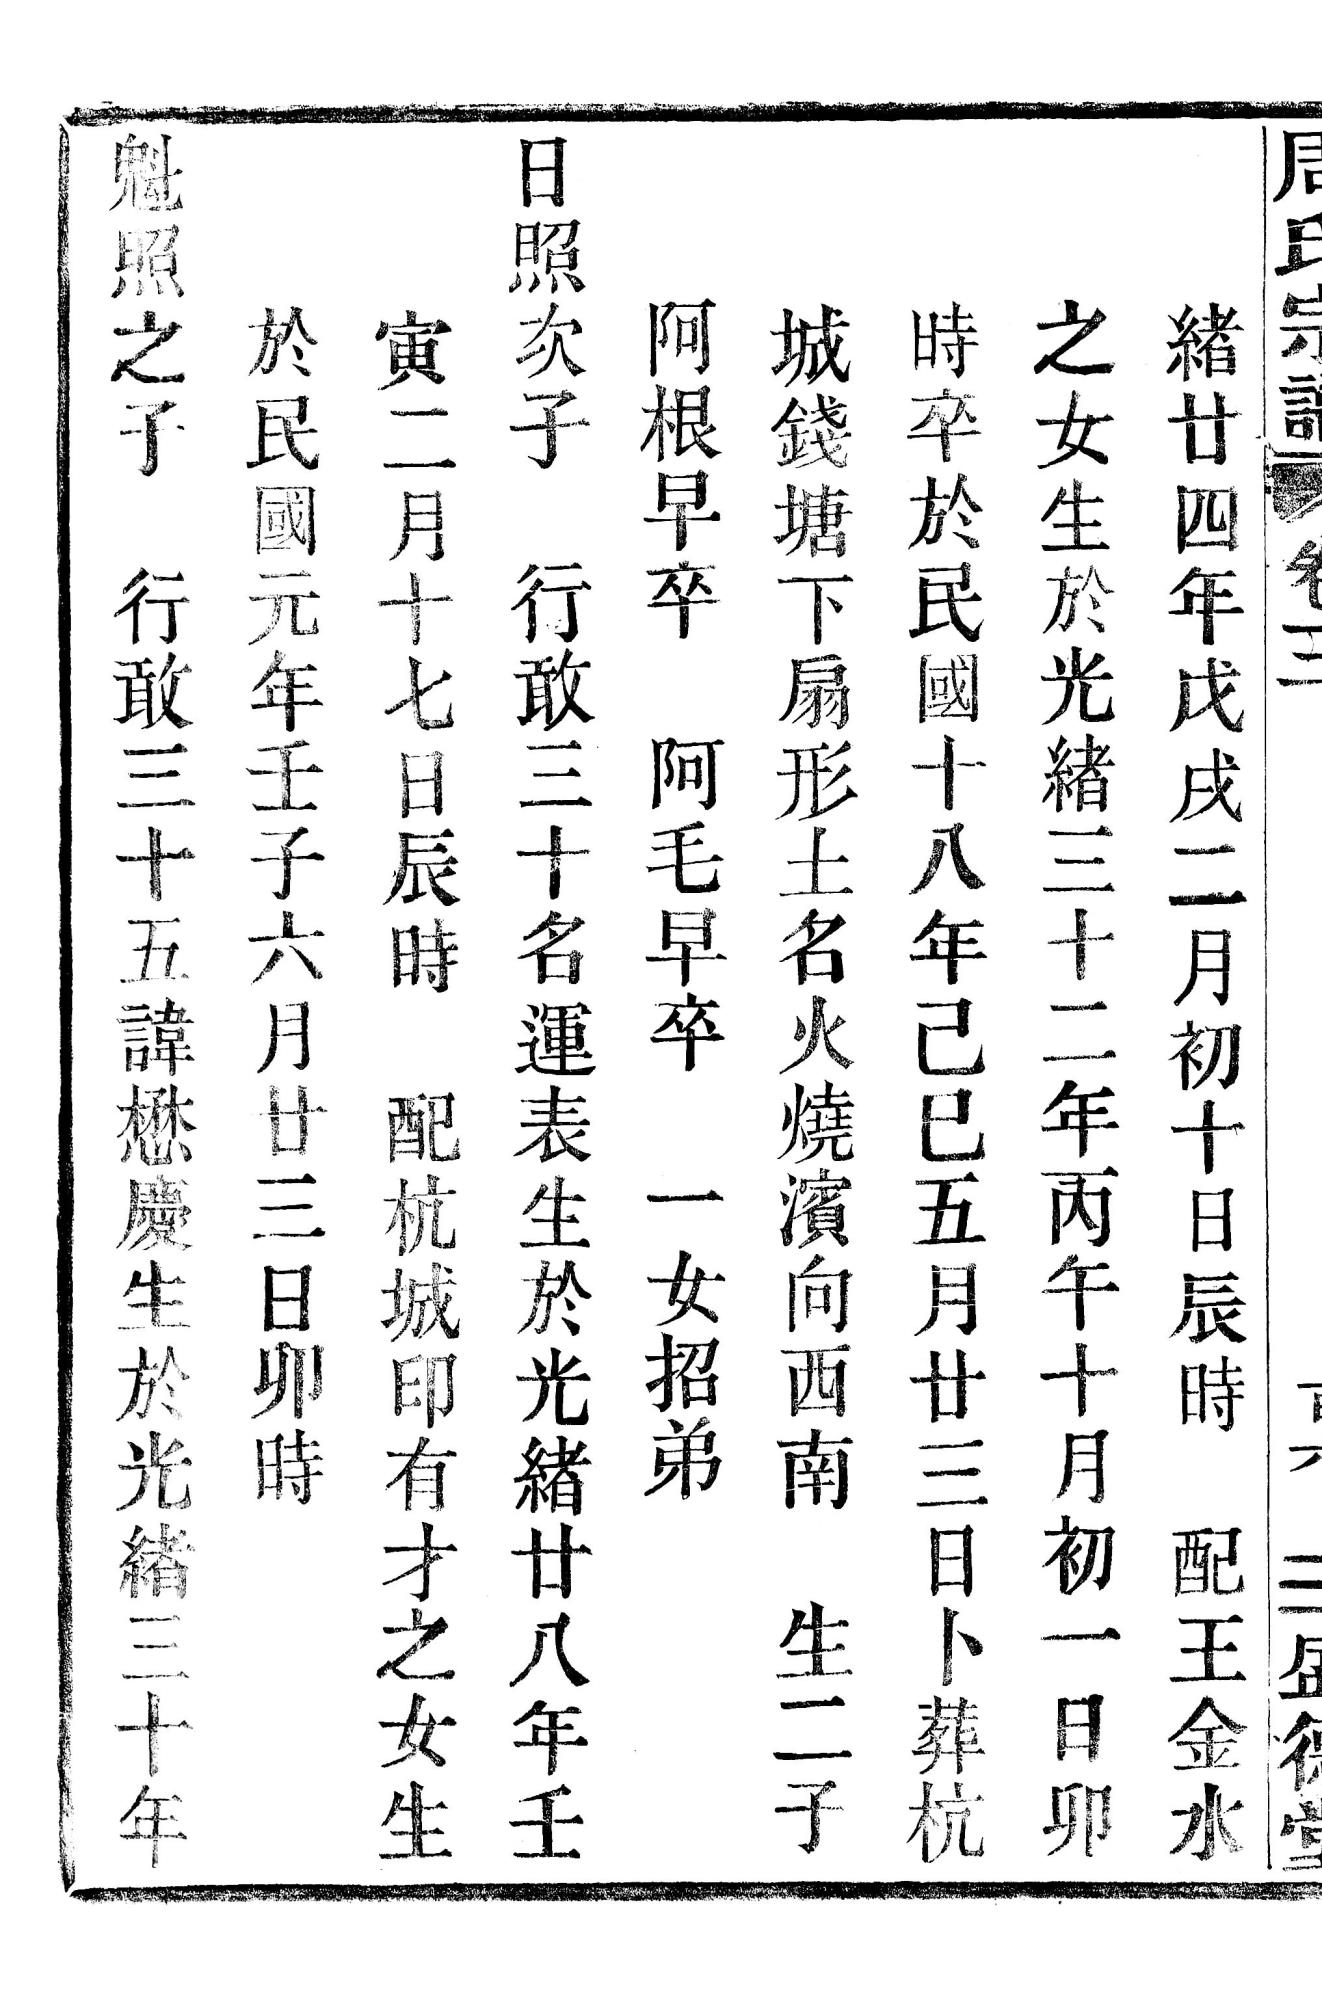 周氏宗譜 卷三 盛德堂
緒廿四年戊戌二月初十日辰時 配王金水
之女生於光緒三十二年丙午十月初一日卯
時卒於民國十八年己巳五月廿三日卜葬杭
城錢塘下扇形土名火燒濱向西南 生二子
阿根早卒 阿毛早卒 一女招弟
日照次子 行敢三十名運表生於光緒廿八年壬
寅二月十七日辰時 配杭城印有才之女生
於民國元年壬子六月廿三日卯時
魁照之子 行敢三十五諱懋慶生於光緒三十年